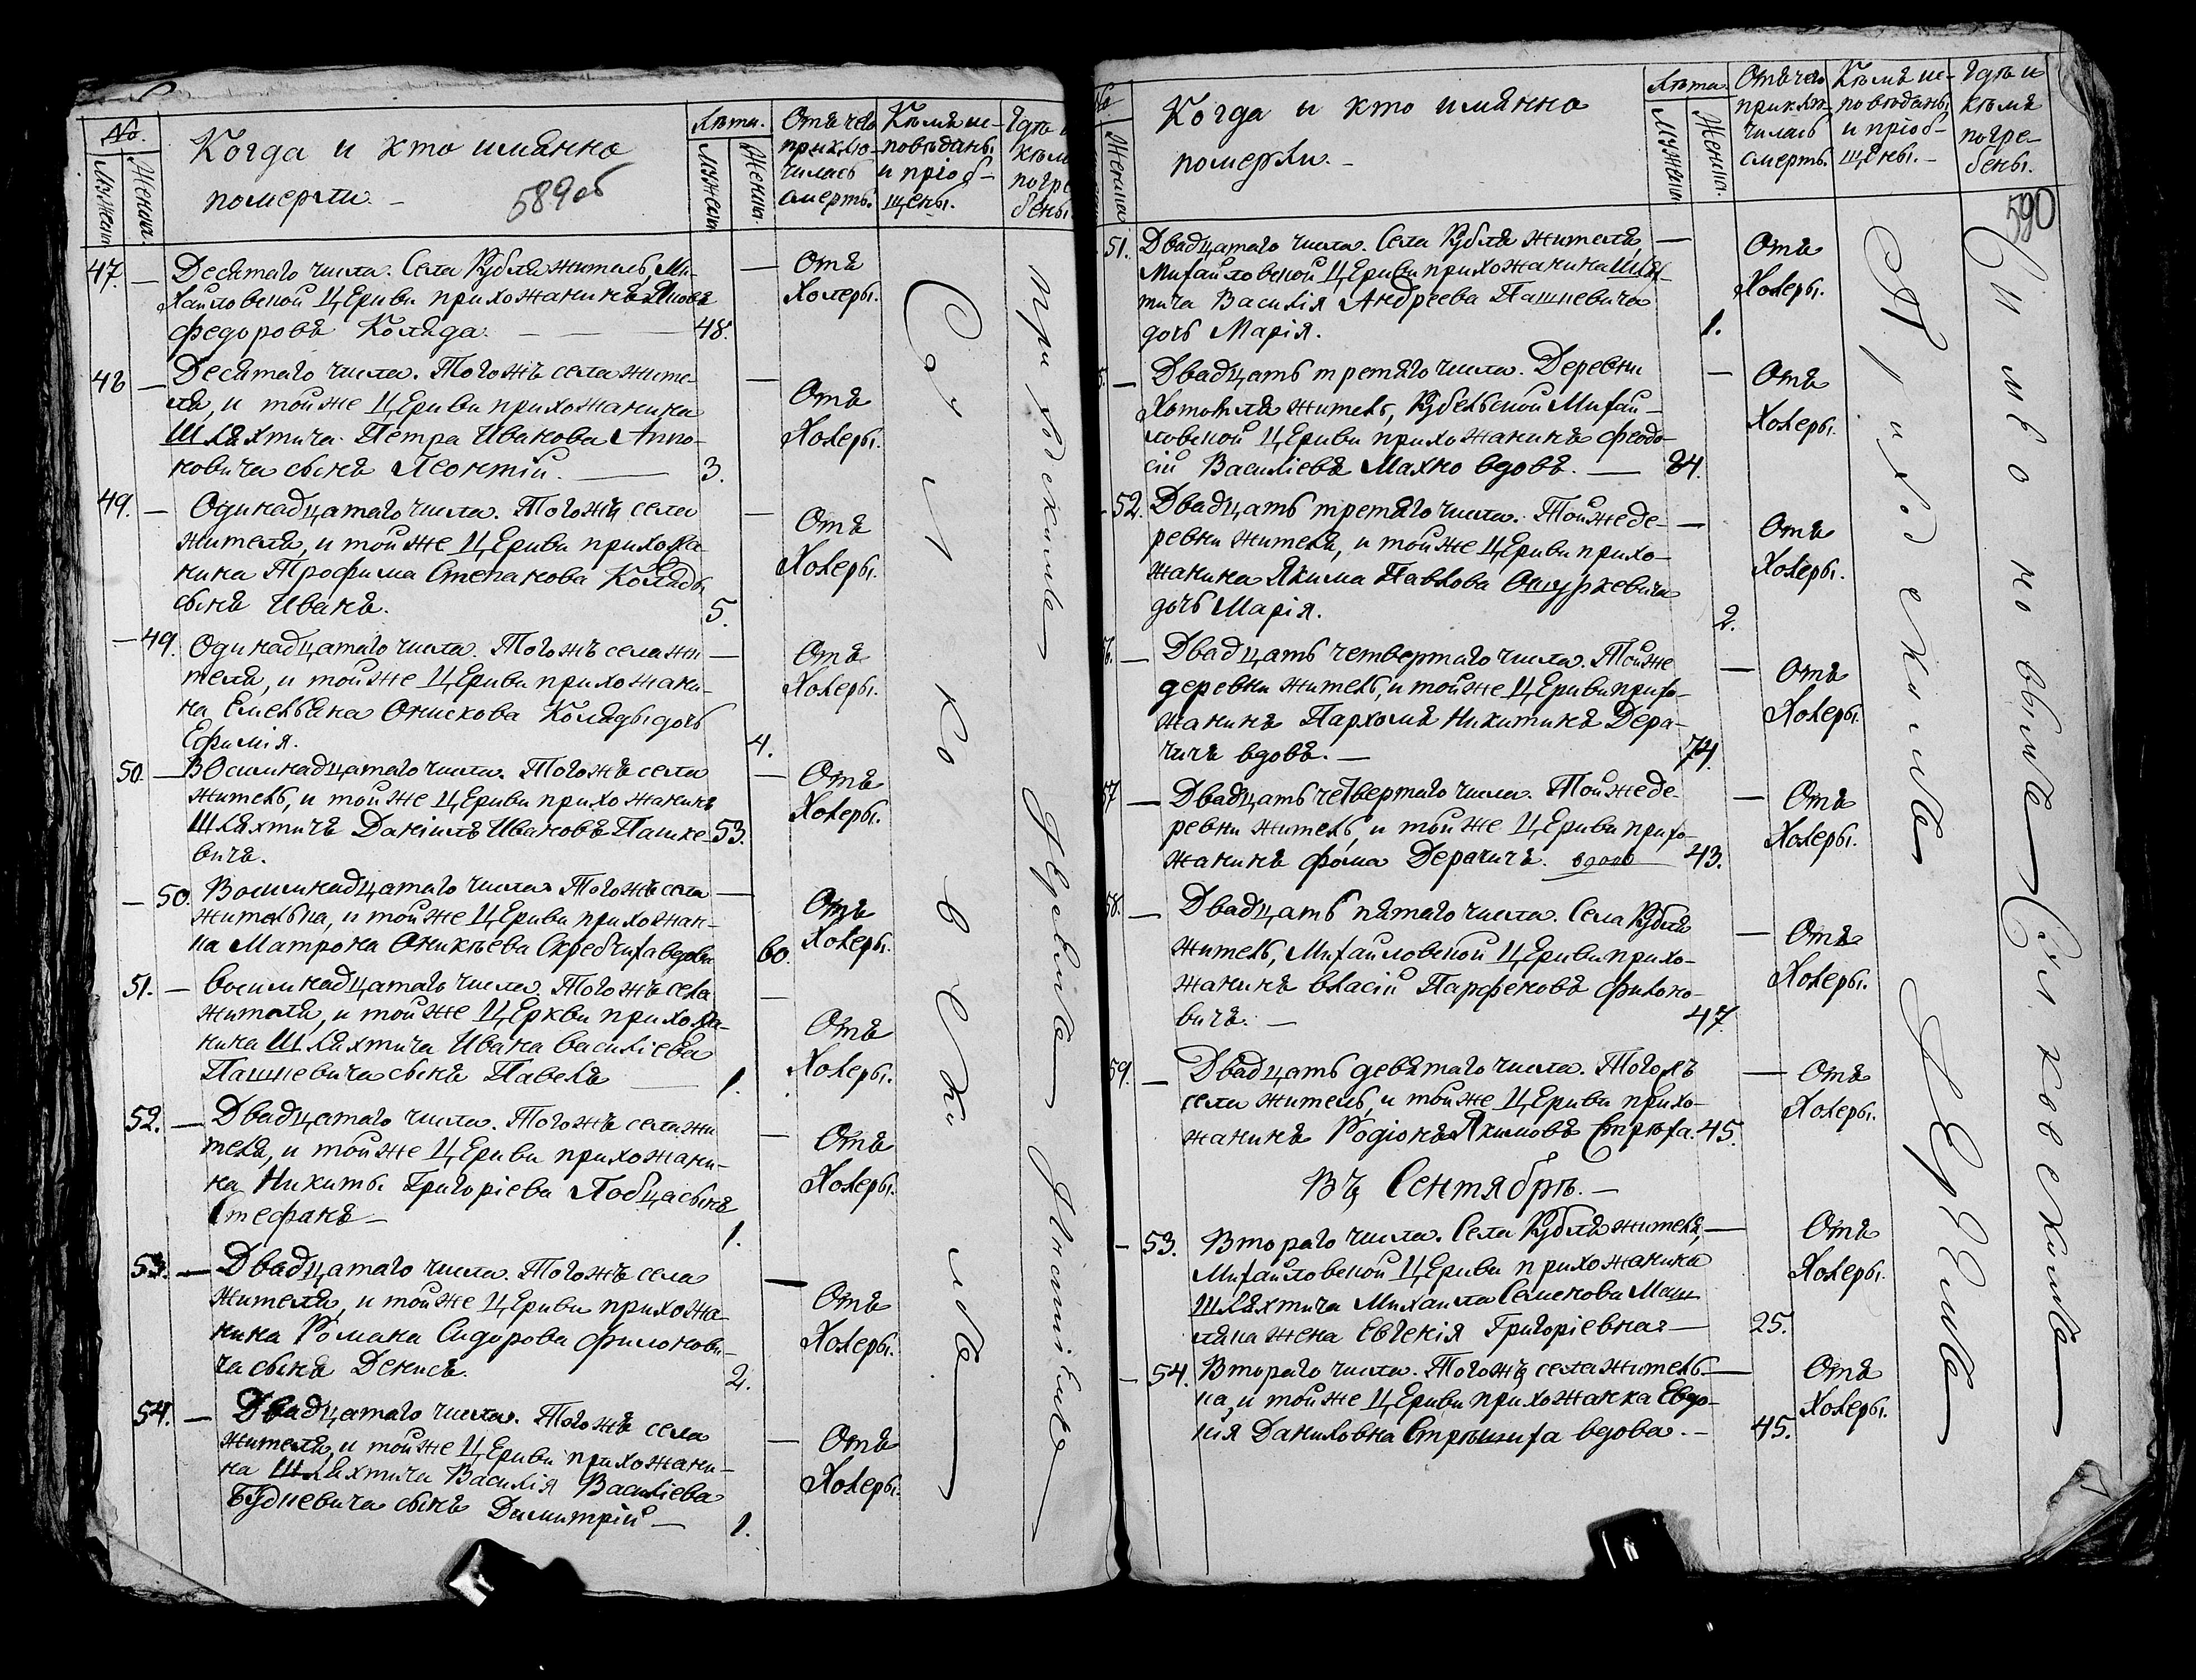 №.
Мужеска
Женска.
Когда и кто имянно
померли. –
589об
Лѣта.
Мужеска
Женска.
Отъ чего
приклю-
чилась
смерть.
Кѣмъ ис-
повѣданы
и пріоб-
щены.
Гдѣ и
кѣмъ
погре
бены
47. — Десятаго числа. Села Кубля житель, Ми-
хайловской Церкви прихожанинъ
Федоровъ Коляда. — 48. — Отъ Холеры.
48 — Десятаго числа. Тогожъ села жите-
ля, и тойже Церкви прихожанина
Шляхтича Петра Иванова
сынъ Леонтій. — 3. — Отъ Холеры.
49. — Одинадцатаго числа. Тогожъ села
жителя, и тойже Церкви прихожа-
нина Трофима Степанова Коляды
сынъ Иванъ. 5. — Отъ Холеры.
—49. Одинадцатаго числа. Тогожъ села жи
теля, и тойже Церкви прихожани-
на Емельяна Онискова Коляды дочь
Ефимія. — 4. Отъ Холеры.
50. — Восимнадцатаго числа. Тогожъ села
житель, и тойже Церкви прихожанинъ
Шляхтичъ Даніилъ Ивановъ Пашке-
вичъ. 53. — Отъ Холеры.
— 50. Восимнадцатаго числа Тогожъ села
жителька, и тойже Церкви прихожан-
ка Матрона Оникѣева вдова — 60. Отъ Холеры.
51. — Восимнадцатаго числа. Тогожъ села
жителя, и тойже Церкви прихожа-
нина Шляхтича Ивана Василіева
Пашкевича сынъ Павелъ — 1. — Отъ Холеры.
52. — Двадцатаго числа. Тогожъ села жи
теля, и тойже Церкви прихожани-
на Никиты Григоріева сынъ
Стефанъ — 1. — Отъ Холеры.
53. — Двадцатаго числа. Тогожъ села
жителя, и тойже Церкви прихожа-
нина Романа Сидорова Филонови-
ча сынъ Денисъ. 2. — Отъ Холеры.
54. — Двадцатаго числа. Тогожъ села
жителя, и тойже Церкви прихожани-
на Шляхтича Василія Василіева
Будкевича сынъ Димитрій — 1. — Отъ Холеры.
При
Женска
Когда и кто имянно
померли. –
Лѣта.
Мужеска
Женска.
Отъ чего
приклю-
чилась
смерть.
Кѣмъ ис-
повѣданы
и пріоб-
щены. –
Гдѣ и
кѣмъ
погре-
бены.
590
51. Двадцатаго числа. Села Кубля жителя,
Михайловской Церкви прихожанина Шлях-
тича Василія Андреева Пашкевича
дочь Марія. — 1. Отъ Холеры.
— Двадцать третяго числа. Деревни
Хотомля житель, Кубельской Михай-
ловской Церкви прихожанинъ Феодо-
сій Василіевъ Махно вдовъ. — 84. — Отъ Холеры.
-52. Двадцать третяго числа. Тойже де-
ревни жителя, и тойже Церкви прихо-
жанина Якима Павлова Ошуркевича
дочь Марія. — 2. Отъ Холеры.
— Двадцать четвертаго числа. Тойже
деревни житель, и тойже Церкви прихо-
жанинъ Пархомъ Никитинъ Дера-
чичъ вдовъ. — 74. — Отъ Холеры.
57 — Двадцать четвертаго числа. Тойже де-
ревни житель, и тойже Церкви прихо-
жанинъ Фома Дерачичъ. вдовъ 43. — Отъ Холеры.
58. — Двадцать пятаго числа. Села Кубля
житель, Михайловской Церкви прихо-
жанинъ Власій Парфеновъ Филоно-
вичъ. — 47. — Отъ Холеры.
59. — Двадцать девятаго числа. Тогожъ
села житель, и тойже Церкви прихо-
жанинъ Родіонъ Якимовъ Стрѣха. 45. — Отъ Холеры.
Въ Сентябрѣ. –
— 53. Втораго числа. Села Кубля жителя,
Михайловской Церкви прихожанина
Шляхтича Михаила Семенова
жена Евгенія Григоріевна — 25. Отъ Холеры.
— 54. Втораго числа. Тогожъ села житель-
ка, и тойже Церкви прихожанка Евдо-
кія Даниловна вдова. – 45. Отъ Холеры.